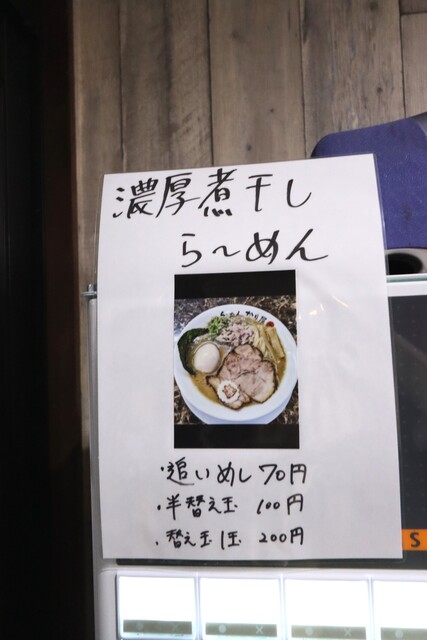 濃厚煮干し
ら〜めん
・追いめし 70円
・半替え玉 100円
・替え玉1玉 200円
S